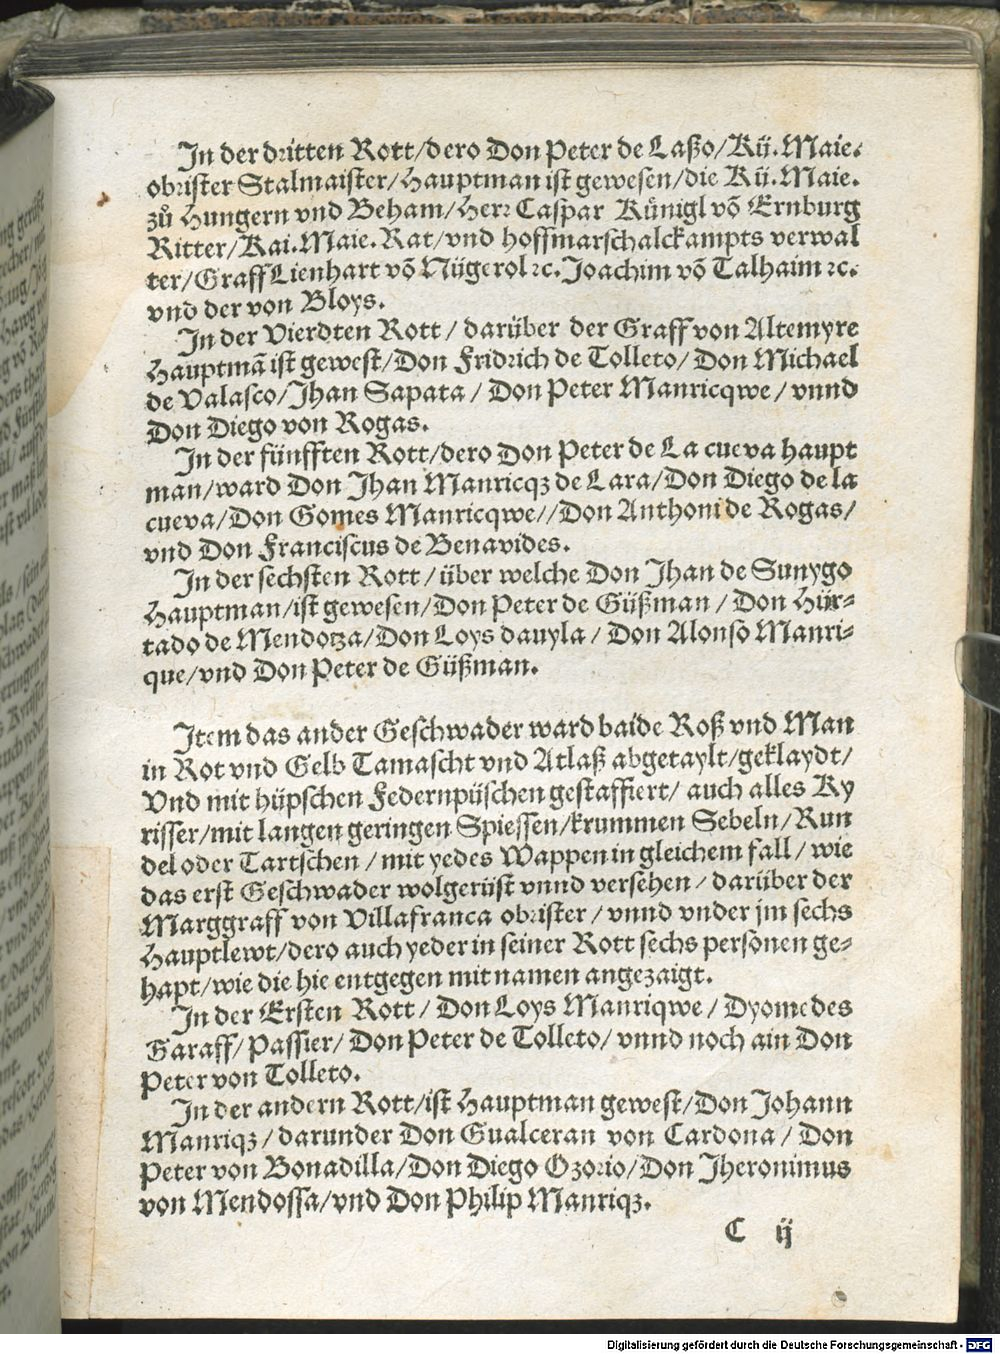 In der dritten Rott/dero Don Peter de Laßo/Kü.Maie.
obrister Stalmaister/Hauptman ist gewesen/die Kü.Maie.
zů Hungern vnd Beham/Herr Caspar Künigl võ Ernburg
Ritter/Kai.Maie.Rat/vnd hoffmarschalckampts verwal
ter/Graff Lienhart võ Nügerol ꝛc.Joachim võ Talhaim ꝛc.
vnd der von Bloys.
In der Vierdten Rott/ darüber der Graff von Altemyre
Hauptmã ist gewest/Don Fridrich de Tolleto/ Don Michael
de Valasco/Jhan Sapata / Don Peter Manricqwe / vnnd
Don Diego von Rogas.
In der fünfften Rott/dero Don Peter de La cueva haupt
man/ward Don Jhan Manricqꝫ de Lara/Don Diego de la
cueva/Don Gomes Manricqwe//Don Anthoni de Rogas/
vnd Don Franciscus de Benavides.
In der sechsten Rott/über welche Don Jhan de Sunygo
Hauptman/ist gewesen/Don Peter de Güßman / Don Hür⸗
tado de Mendotza/Don Loys dauyla / Don Alonso Manri⸗
que/vnd Don Peter de Güßman.
Item das ander Geschwader ward baide Roß vnd Man
in Rot vnd Gelb Tamascht vnd Atlaß abgetaylt/geklaydt/
Vnd mit hüpschen Federnpüschen gestaffiert/ auch alles Ky
risser/mit langen geringen Spiessen/krummen Sebeln/Run
del oder Tartschen / mit yedes Wappen in gleichem fall / wie
das erst Geschwader wolgerüst vnnd versehen / darüber der
Marggraff von Villafranca obrister / vnnd vnder jm sechs
Hauptlewt/dero auch yeder in seiner Rott sechs personen ge⸗
hapt/wie die hie entgegen mit namen angezaigt.
In der Ersten Rott/ Don Loys Manriqwe / Dyomedes
Garaff/ Passier/ Don Peter de Tolleto/ vnnd noch ain Don
Peter von Tolleto.
In der andern Rott/ist Hauptman gewest/Don Johann
Manriqꝫ / darunder Don Gualceran von Cardona / Don
Peter von Bonadilla/Don Diego Ozorio/Don Jheronimus
von Mendossa/vnd Don Philip Manriqꝫ.
C ij
Digitalisierung gefördert durch die Deutsche Forschungsgemeinschaft - DFG